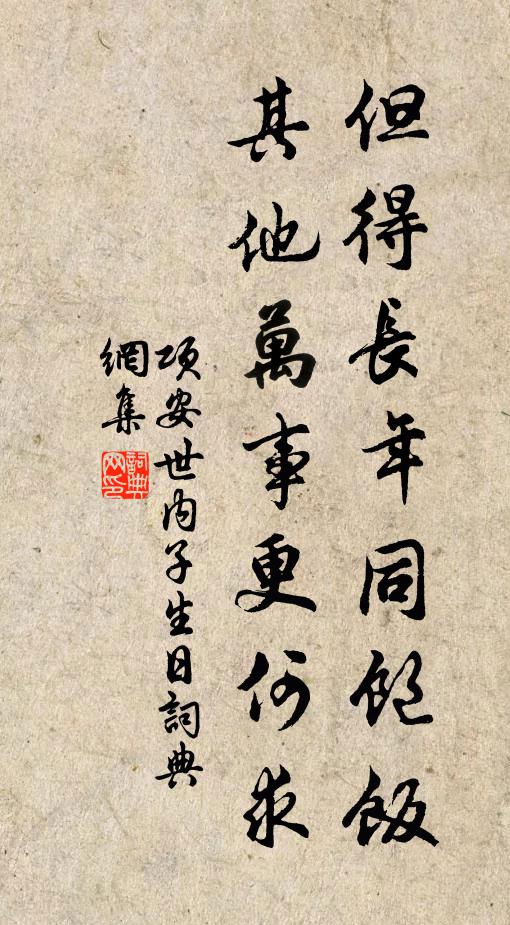 但得長年同飽飯
其他萬事更何求
項安世內子生日詞典
網集
詞典
網印